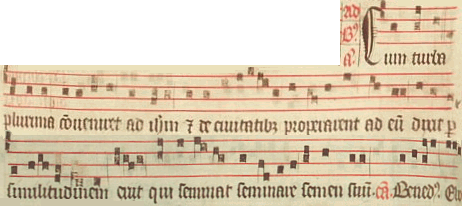 ad
B. Cum turba
a.
plurima conveniret ad ihm et de civitatibz properarent ad eu dixit p
similitudinem exiit qui seminat seminare semen suu. ca. Bened.